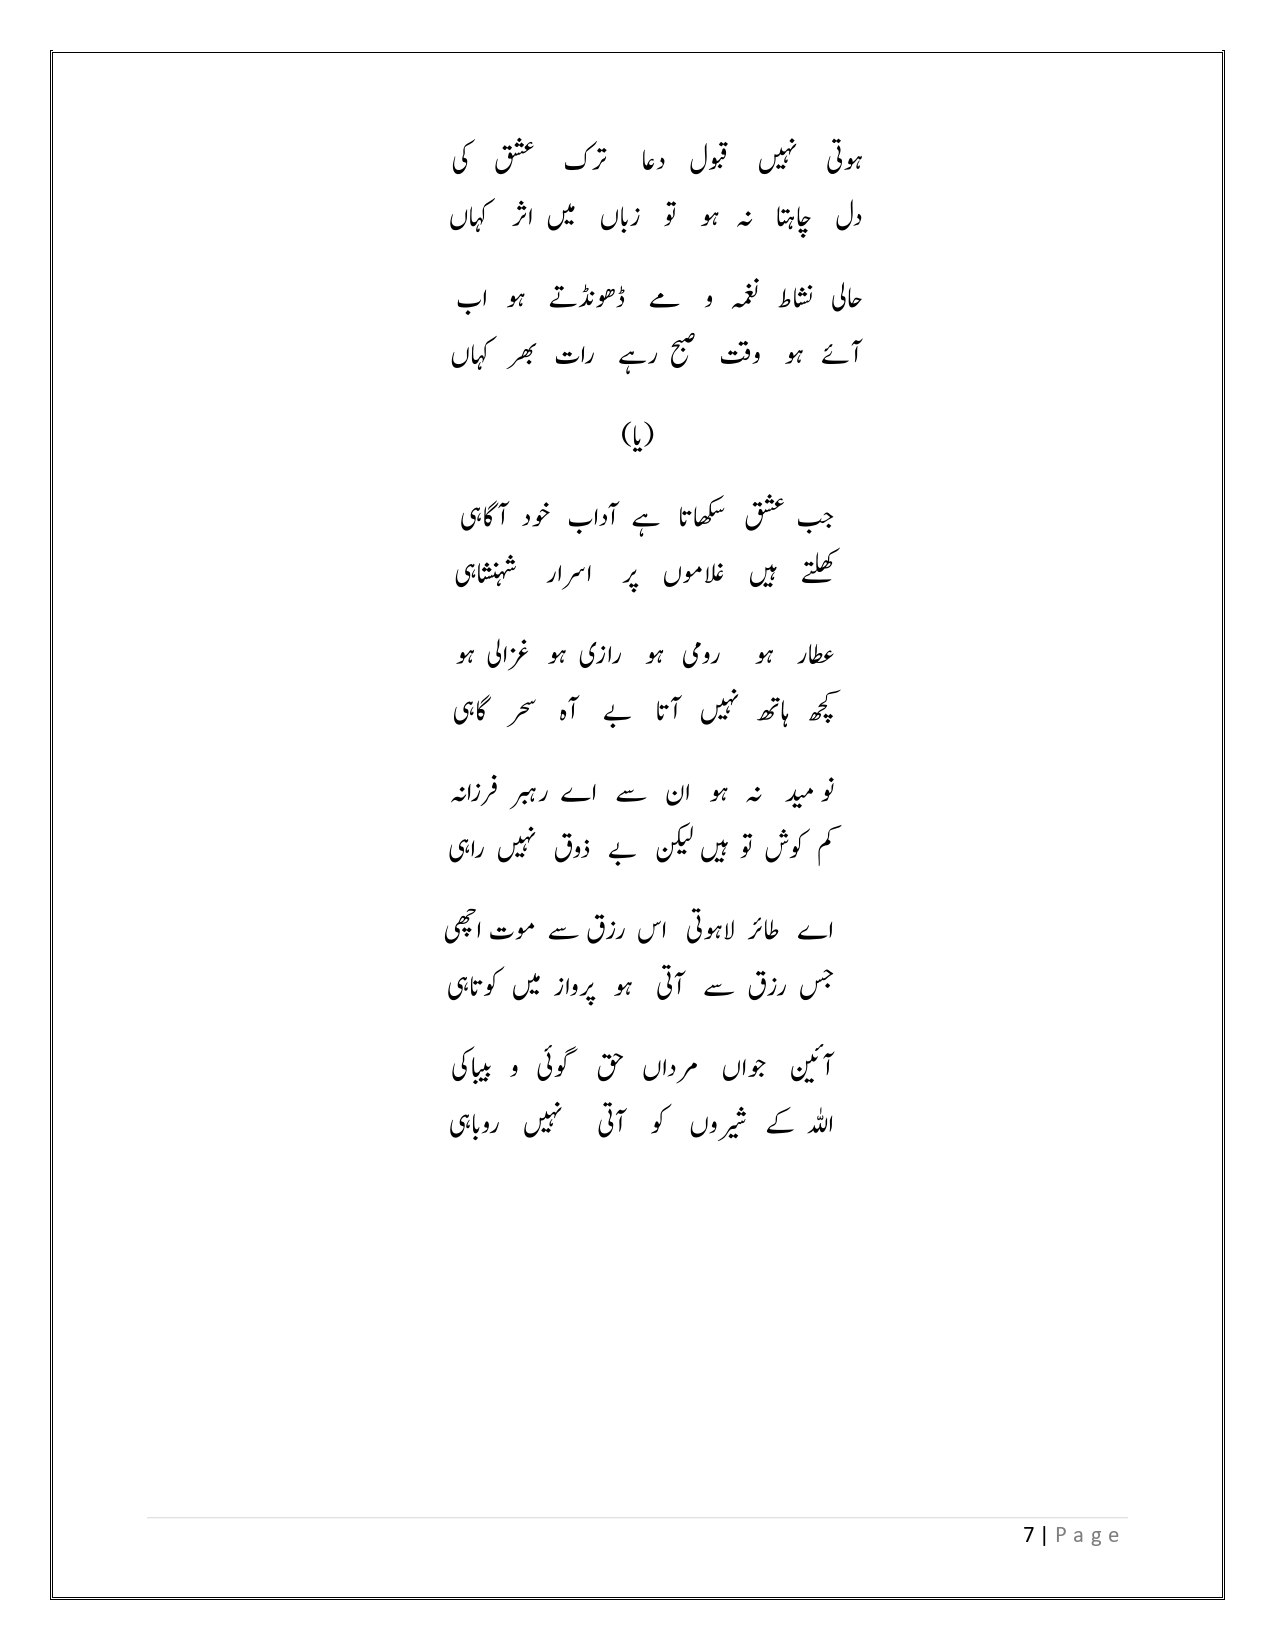 ہوتی نہیں قبول دعا ترک عشق کی
دل چاہتا نہ ہو تو زباں میں اثر کہاں
حالی نشاط نغمہ و مے ڈھونڈتے ہو اب
آئے ہو وقت صبح رہے رات بھر کہاں
(یا)
جب عشق سکھاتا ہے آداب خود آگاہی
کھلتے ہیں غلاموں پر اسرار شہنشاہی
عطار ہو رومی ہو رازی ہو غزالی ہو
کچھ ہاتھ نہیں آتا بے آہ سحر گاہی
نو مید نہ ہو ان سے اے رہبر فرزانہ
کم کوش تو ہیں لیکن بے ذوق نہیں راہی
اے طائر لاہوتی اس رزق سے موت اچھی
جس رزق سے آتی ہو پرواز میں کوتاہی
آئین جواں مرداں حق گوئی و بیباکی
اللہ کے شیروں کو آتی نہیں روباہی
7 | Page